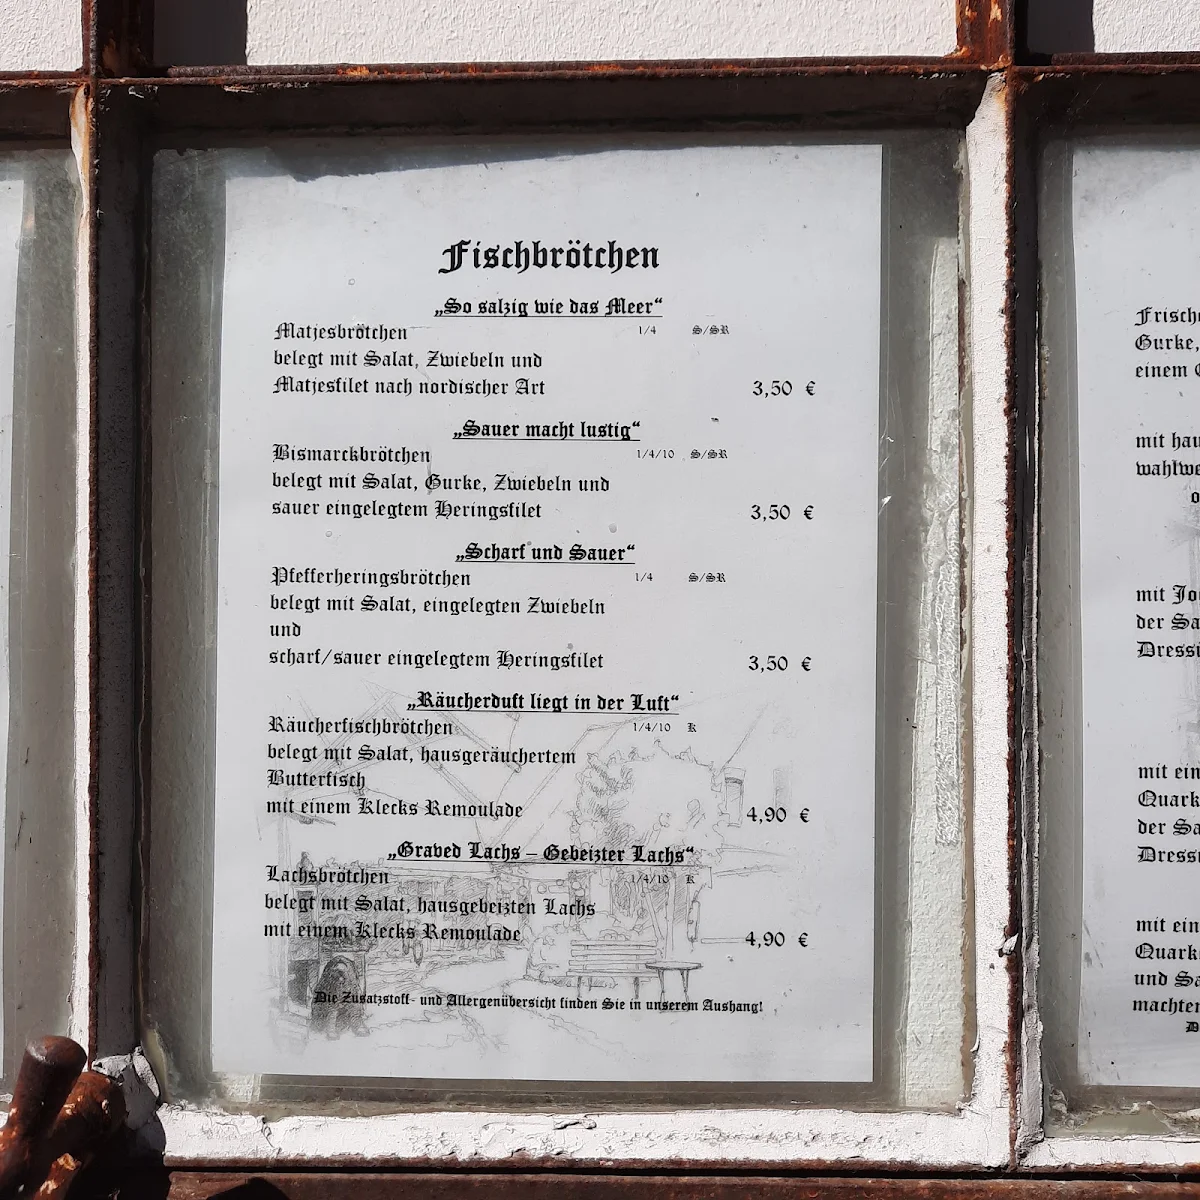 Fischbrötchen
„So salzig wie das Meer“
Matjesbrötchen 1/4 S/SR
belegt mit Salat, Zwiebeln und
Matjesfilet nach nordischer Art 3,50 €
„Sauer macht lustig“
Bismarckbrötchen 1/4/10 S/SR
belegt mit Salat, Gurke, Zwiebeln und
sauer eingelegtem Heringsfilet 3,50 €
„Scharf und Sauer“
Pfefferheringsbrötchen 1/4 S/SR
belegt mit Salat, eingelegten Zwiebeln
und
scharf/sauer eingelegtem Heringsfilet 3,50 €
„Räucherduft liegt in der Luft“
Räucherfischbrötchen 1/4/10 K
belegt mit Salat, hausgeräuchertem
Butterfisch
mit einem Klecks Remoulade 4,90 €
„Graved Lachs – Gebeizter Lachs“
Lachsbrötchen 1/4/10 K
belegt mit Salat, hausgebeizten Lachs
mit einem Klecks Remoulade 4,90 €
Die Zusatzstoff- und Allergenübersicht finden Sie in unserem Aushang!
Gurke,
einem
mit
mit
der
mit
der
mit
und